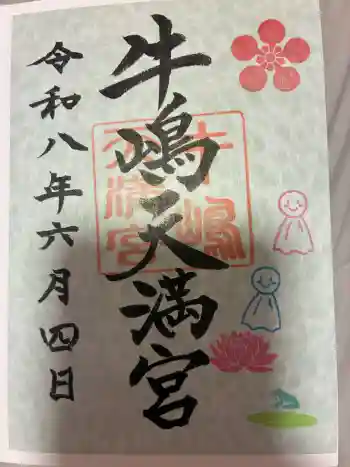 牛嶋天満宮
令和八年六月四日
牛嶋
天満宮